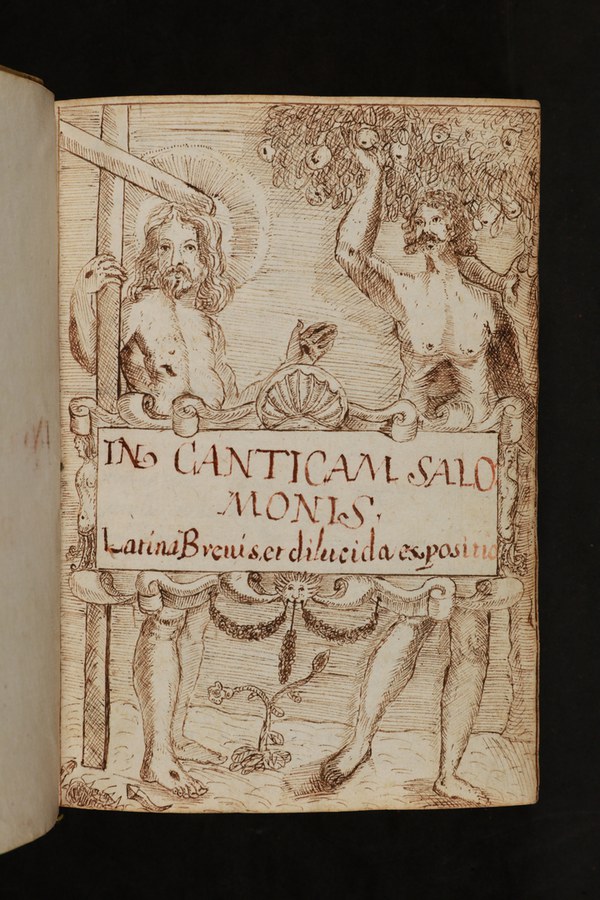 IN CANTICAM SALO
MONIS.
Latina Brevis, et dilucida expositio